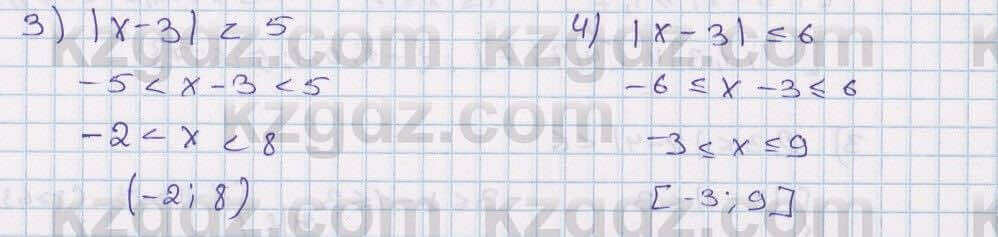 3) |x-3| < 5
-5 < x - 3 < 5
-2 < x < 8
(-2; 8)
4) |x - 3| ≤ 6
-6 ≤ x - 3 ≤ 6
-3 ≤ x ≤ 9
[-3; 9]
kzgdz.com
kzgdz.com
kzgdz.com
kzgdz.com
kzgdz.com